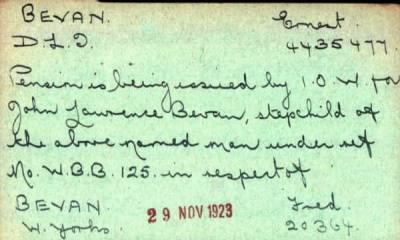 BEVAN. Ernest.
D.L.I. 4435477.
Pension is being issued by I.O.W. for
John Lawrence Bevan, stepchild of
the above named man under ref
No. W.B.B. 125. in respect of
BEVAN. Fred.
29 NOV 1923
W. Yorks. 20364.